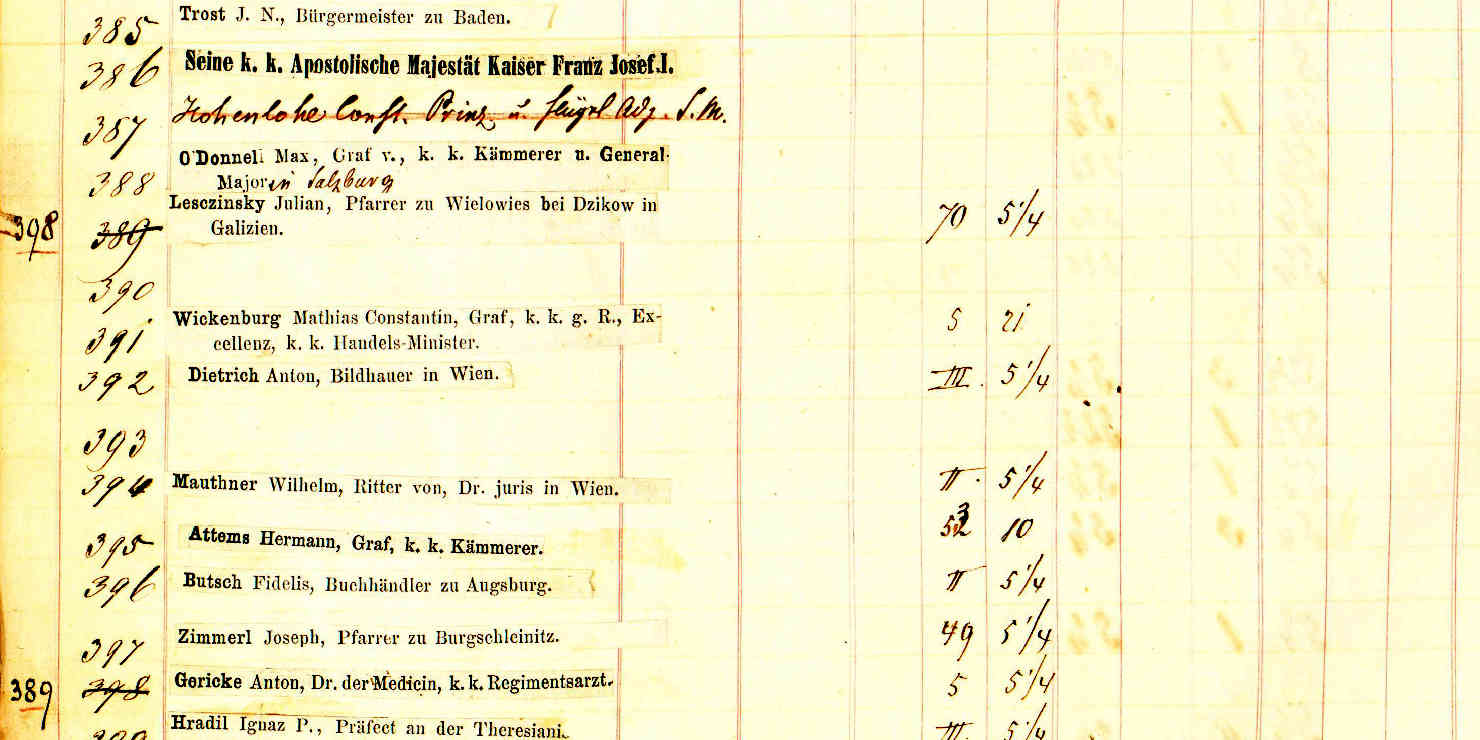 385 Trost J. N., Bürgermeister zu Baden.
386 Seine k. k. Apostolische Majestät Kaiser Franz Josef I.
387 Hohenlohe Const. Prinz u. Flügel Adj. S. M.
388 O'Donnell Max, Graf v., k. k. Kämmerer u. General-
Major in Salzburg
398 389 Lesczinsky Julian, Pfarrer zu Wielowies bei Dzikow in 70 5 1/4
Galizien.
390
391 Wickenburg Mathias Constantin, Graf, k. k. g. R., Ex- 5 21
cellenz, k. k. Handels-Minister.
392 Dietrich Anton, Bildhauer in Wien. III. 5 1/4
393
394 Mauthner Wilhelm, Ritter von, Dr. juris in Wien. II. 5 1/4
395 Attems Hermann, Graf, k. k. Kämmerer. 53 10
396 Butsch Fidelis, Buchhändler zu Augsburg. II 5 1/4
397 Zimmerl Joseph, Pfarrer zu Burgschleinitz. 49 5 1/4
389 398 Gericke Anton, Dr. der Medicin, k. k. Regimentsarzt. 5 5 1/4
399 Hradil Ignaz P., Präfect an der Theresiani- III. 5 1/4